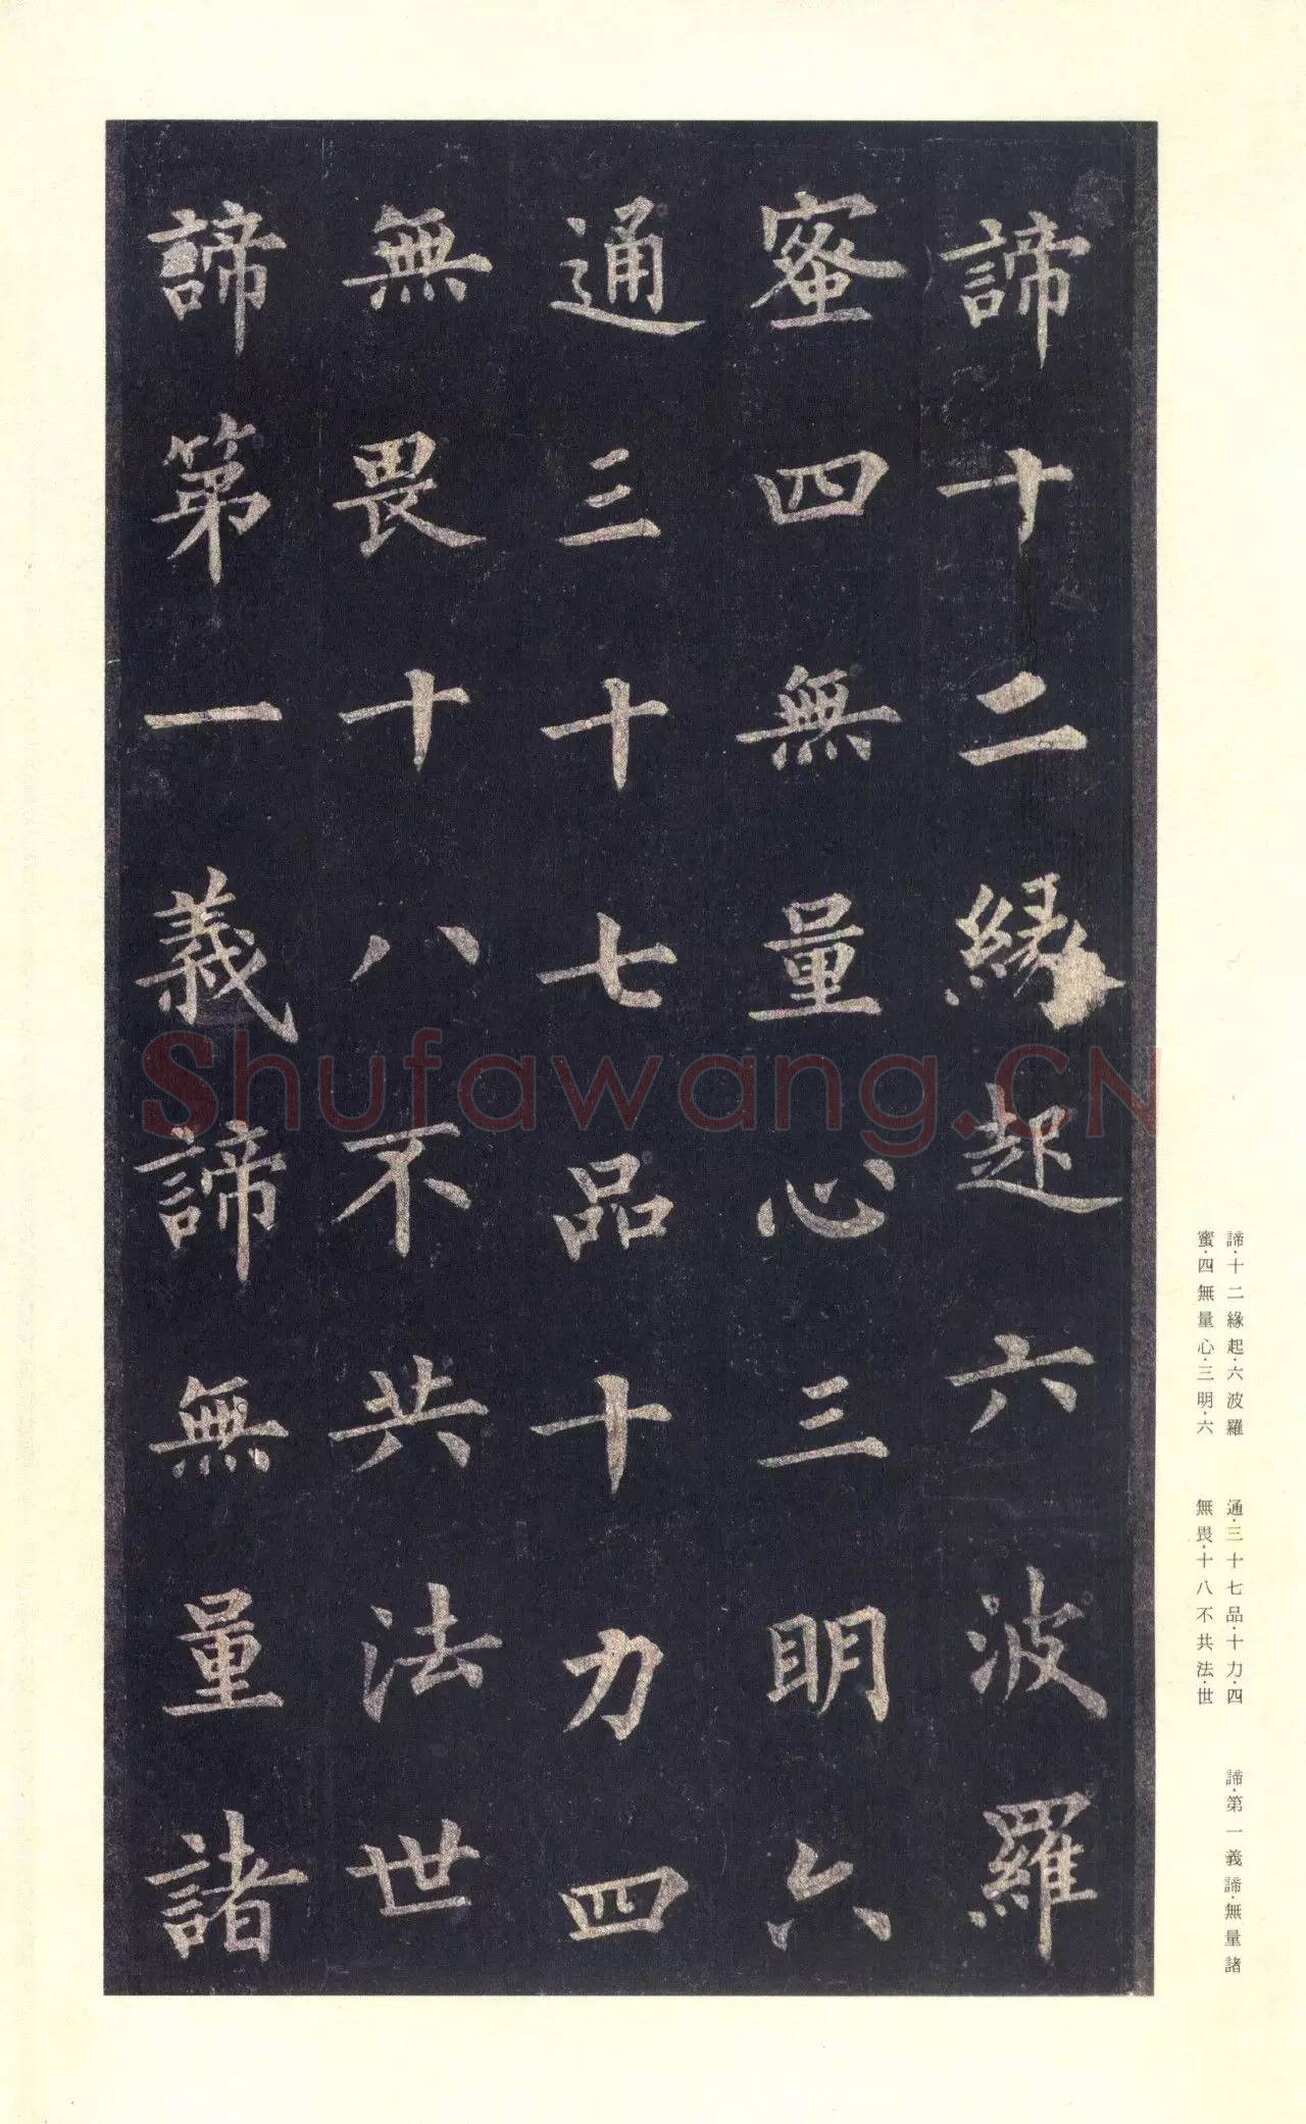 諦十二緣起六波羅
蜜四無量心三明六
通三十七品十力四
無畏十八不共法世
諦第一義諦無量諸
Shufawang.CN
諦·十二緣起·六波羅
蜜·四無量心·三明·六
通·三十七品·十力·四
無畏·十八不共法·世
諦·第一義諦·無量諸